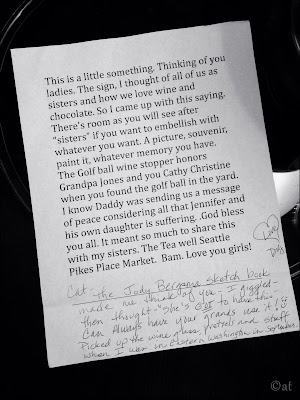 This is a little something. Thinking of you
ladies. The sign, I thought of all of us as
sisters and how we love wine and
chocolate. So i came up with this saying.
There's room as you will see after
"sisters" if you want to embellish with
whatever you want. A picture, souvenir,
paint it, whatever memory you have.
The Golf ball wine stopper honors
Grandpa Jones and you Cathy Christine
when you found the golf ball in the yard.
I know Daddy was sending us a message
of peace considering all that Jennifer and
his own daughter is suffering. .God bless
you all. It meant so much to share this
with my sisters. The Tea well Seattle
Pikes Place Market.  Bam. Love you girls!
Cat - the Jody Bergsma sketch book
made me think of you. I giggled -
then thought - "She's got to have this
Can Always have your grands use it!
Picked up the wine glass, pretzels and stuff
when I was in Eastern Washington in September.
©at